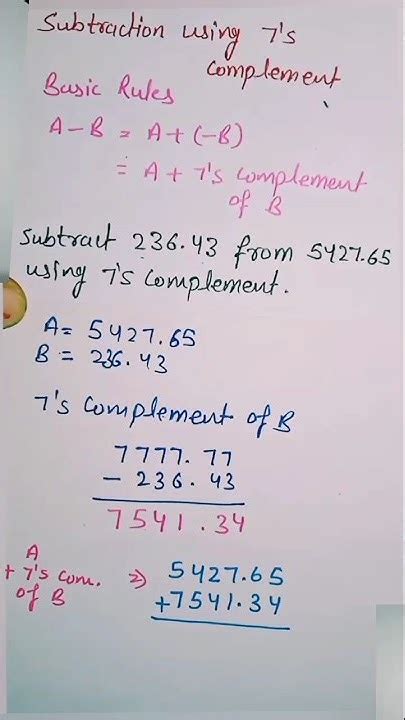 Subtraction using 7's
complement
Basic Rules
A-B = A+(-B)
= A + 7's complement
of B
Subtract 236.43 from 5427.65
using 7's complement.
A= 5427.65
B = 236.43
7's complement of B
7777.77
- 236.43
7541.34
A
+ 7's com.
of B
⇒ 5427.65
+7541.34